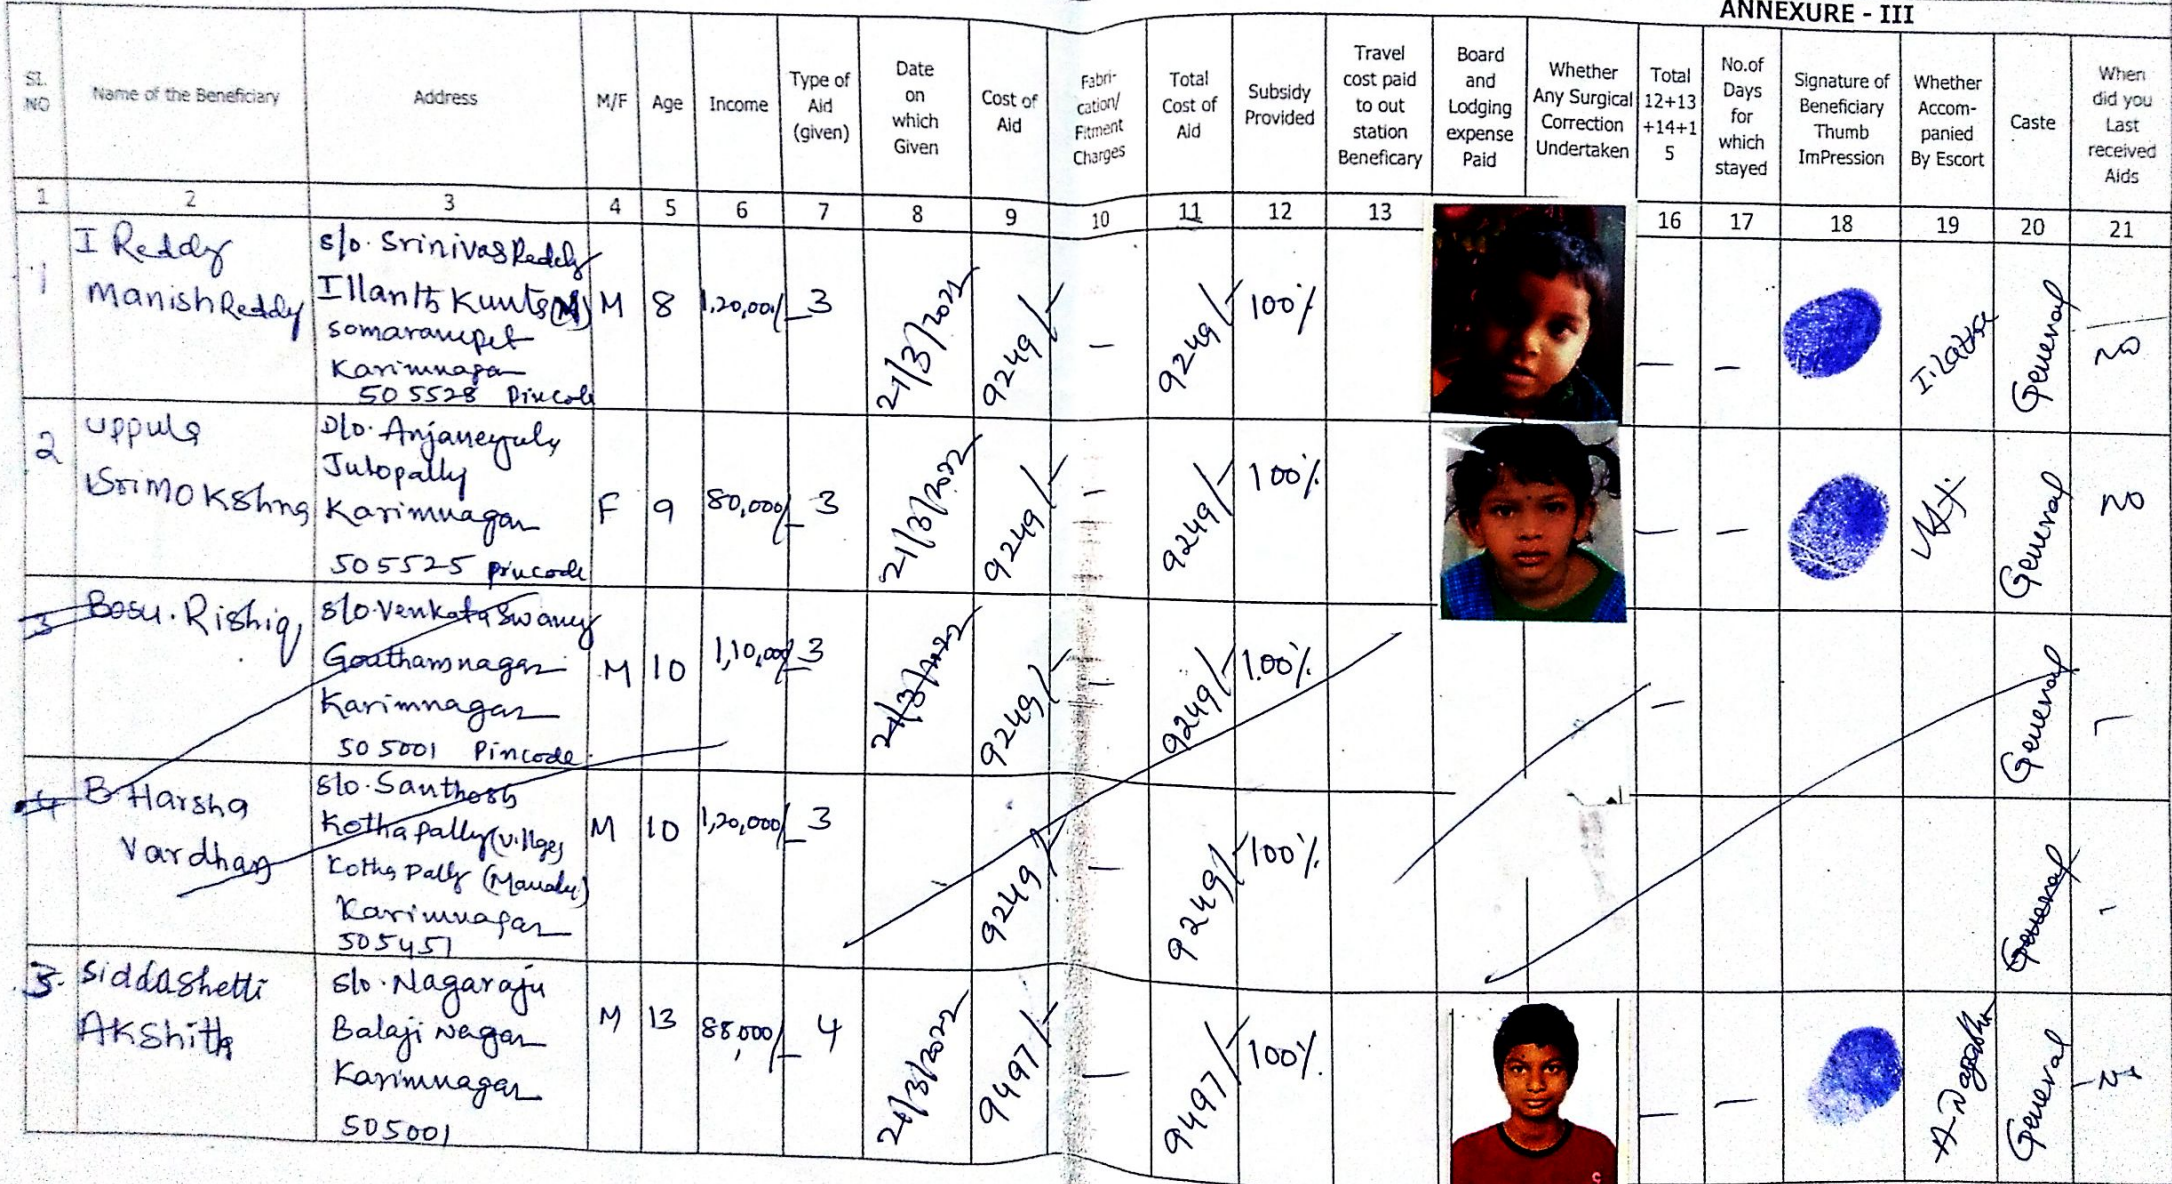 ANNEXURE - III
SL. NO
Name of the Beneficiary
Address
M/F
Age
Income
Type of Aid (given)
Date on which Given
Cost of Aid
Fabri-cation/ Fitment Charges
Total Cost of Aid
Subsidy Provided
Travel cost paid to out station Beneficary
Board and Lodging expense Paid
Whether Any Surgical Correction Undertaken
Total 12+13 +14+1 5
No.of Days for which stayed
Signature of Beneficiary Thumb ImPression
Whether Accom-panied By Escort
Caste
When did you Last received Aids
1 2 3 4 5 6 7 8 9 10 11 12 13 16 17 18 19 20 21
1
I Reddy
Manish Reddy
S/o. Srinivas Reddy
Illanth Kunta (M)
Somarampet
Karimnagar
505528 Pincode
M 8 1,20,000/- 3
21/3/2022
9249/-
-
9249/-
100%
-
-
General
NO
2
Uppula
Srimokshna
D/o. Anjaneyulu
Julopally
Karimnagar
505525 Pincode
F 9 80,000/- 3
21/3/2022
9249/-
-
9249/-
100%
-
-
General
NO
3
Bosu. Rishiq
S/o. Venkata Swamy
Gouthamnagar
Karimnagar
505001 Pincode
M 10 1,10,000/- 3
21/3/2022
9249/-
-
9249/-
100%
-
General
-
4
B Harsha
Vardhan
S/o. Santhosh
Kothapally (Village)
Kothapally (Mandal)
Karimnagar
505451
M 10 1,20,000/- 3
9249/-
-
9249/-
100%
General
-
3.
Siddashetti
Akshith
S/o. Nagaraju
Balaji Nagar
Karimnagar
505001
M 13 88,000/- 4
21/3/2022
9497/-
-
9497/-
100%
-
-
General